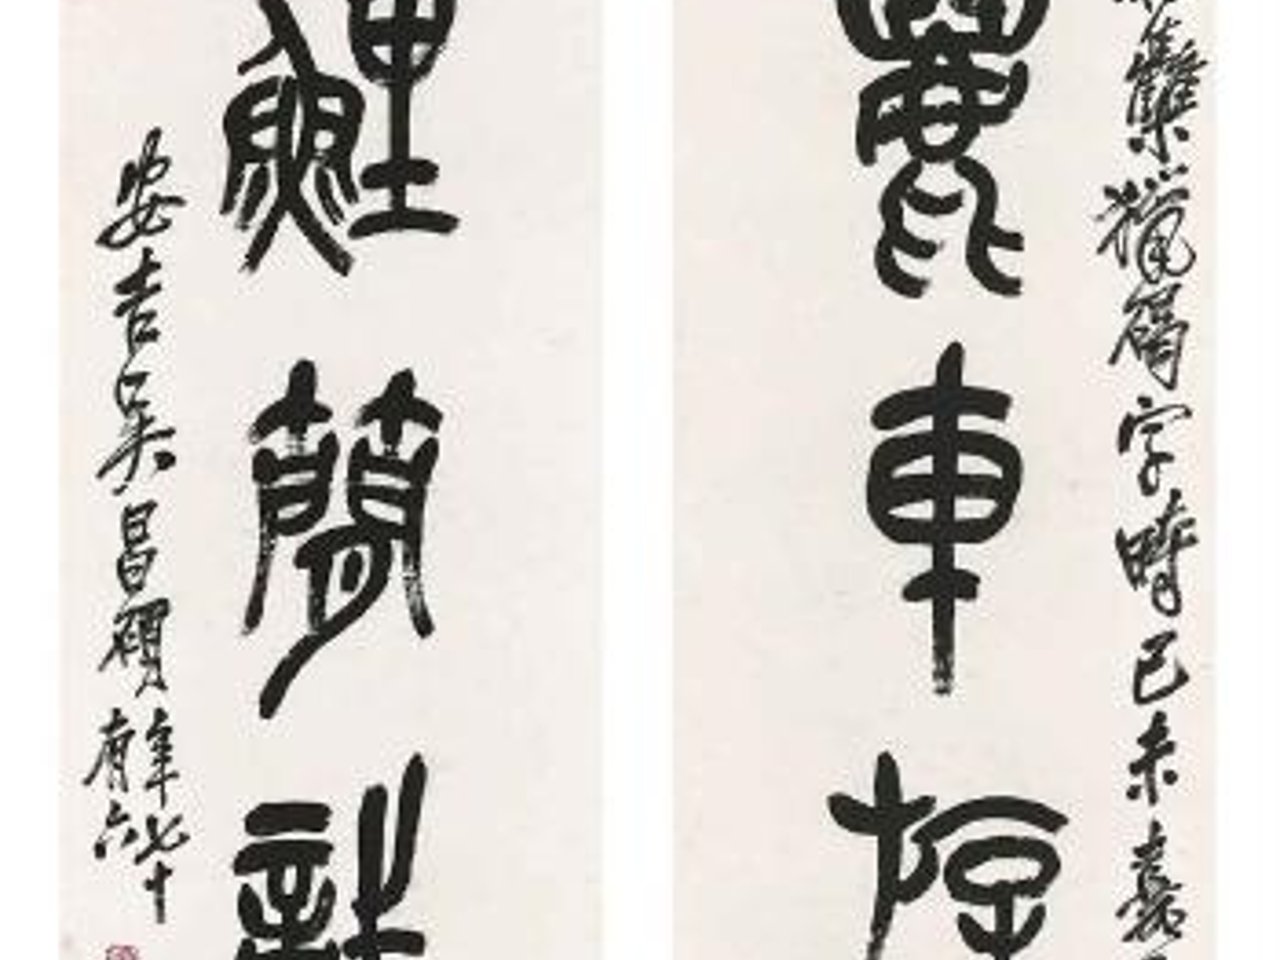 集獵碣字時己未嘉
車斿
鯉簡
安吉吳昌碩年七十
有六